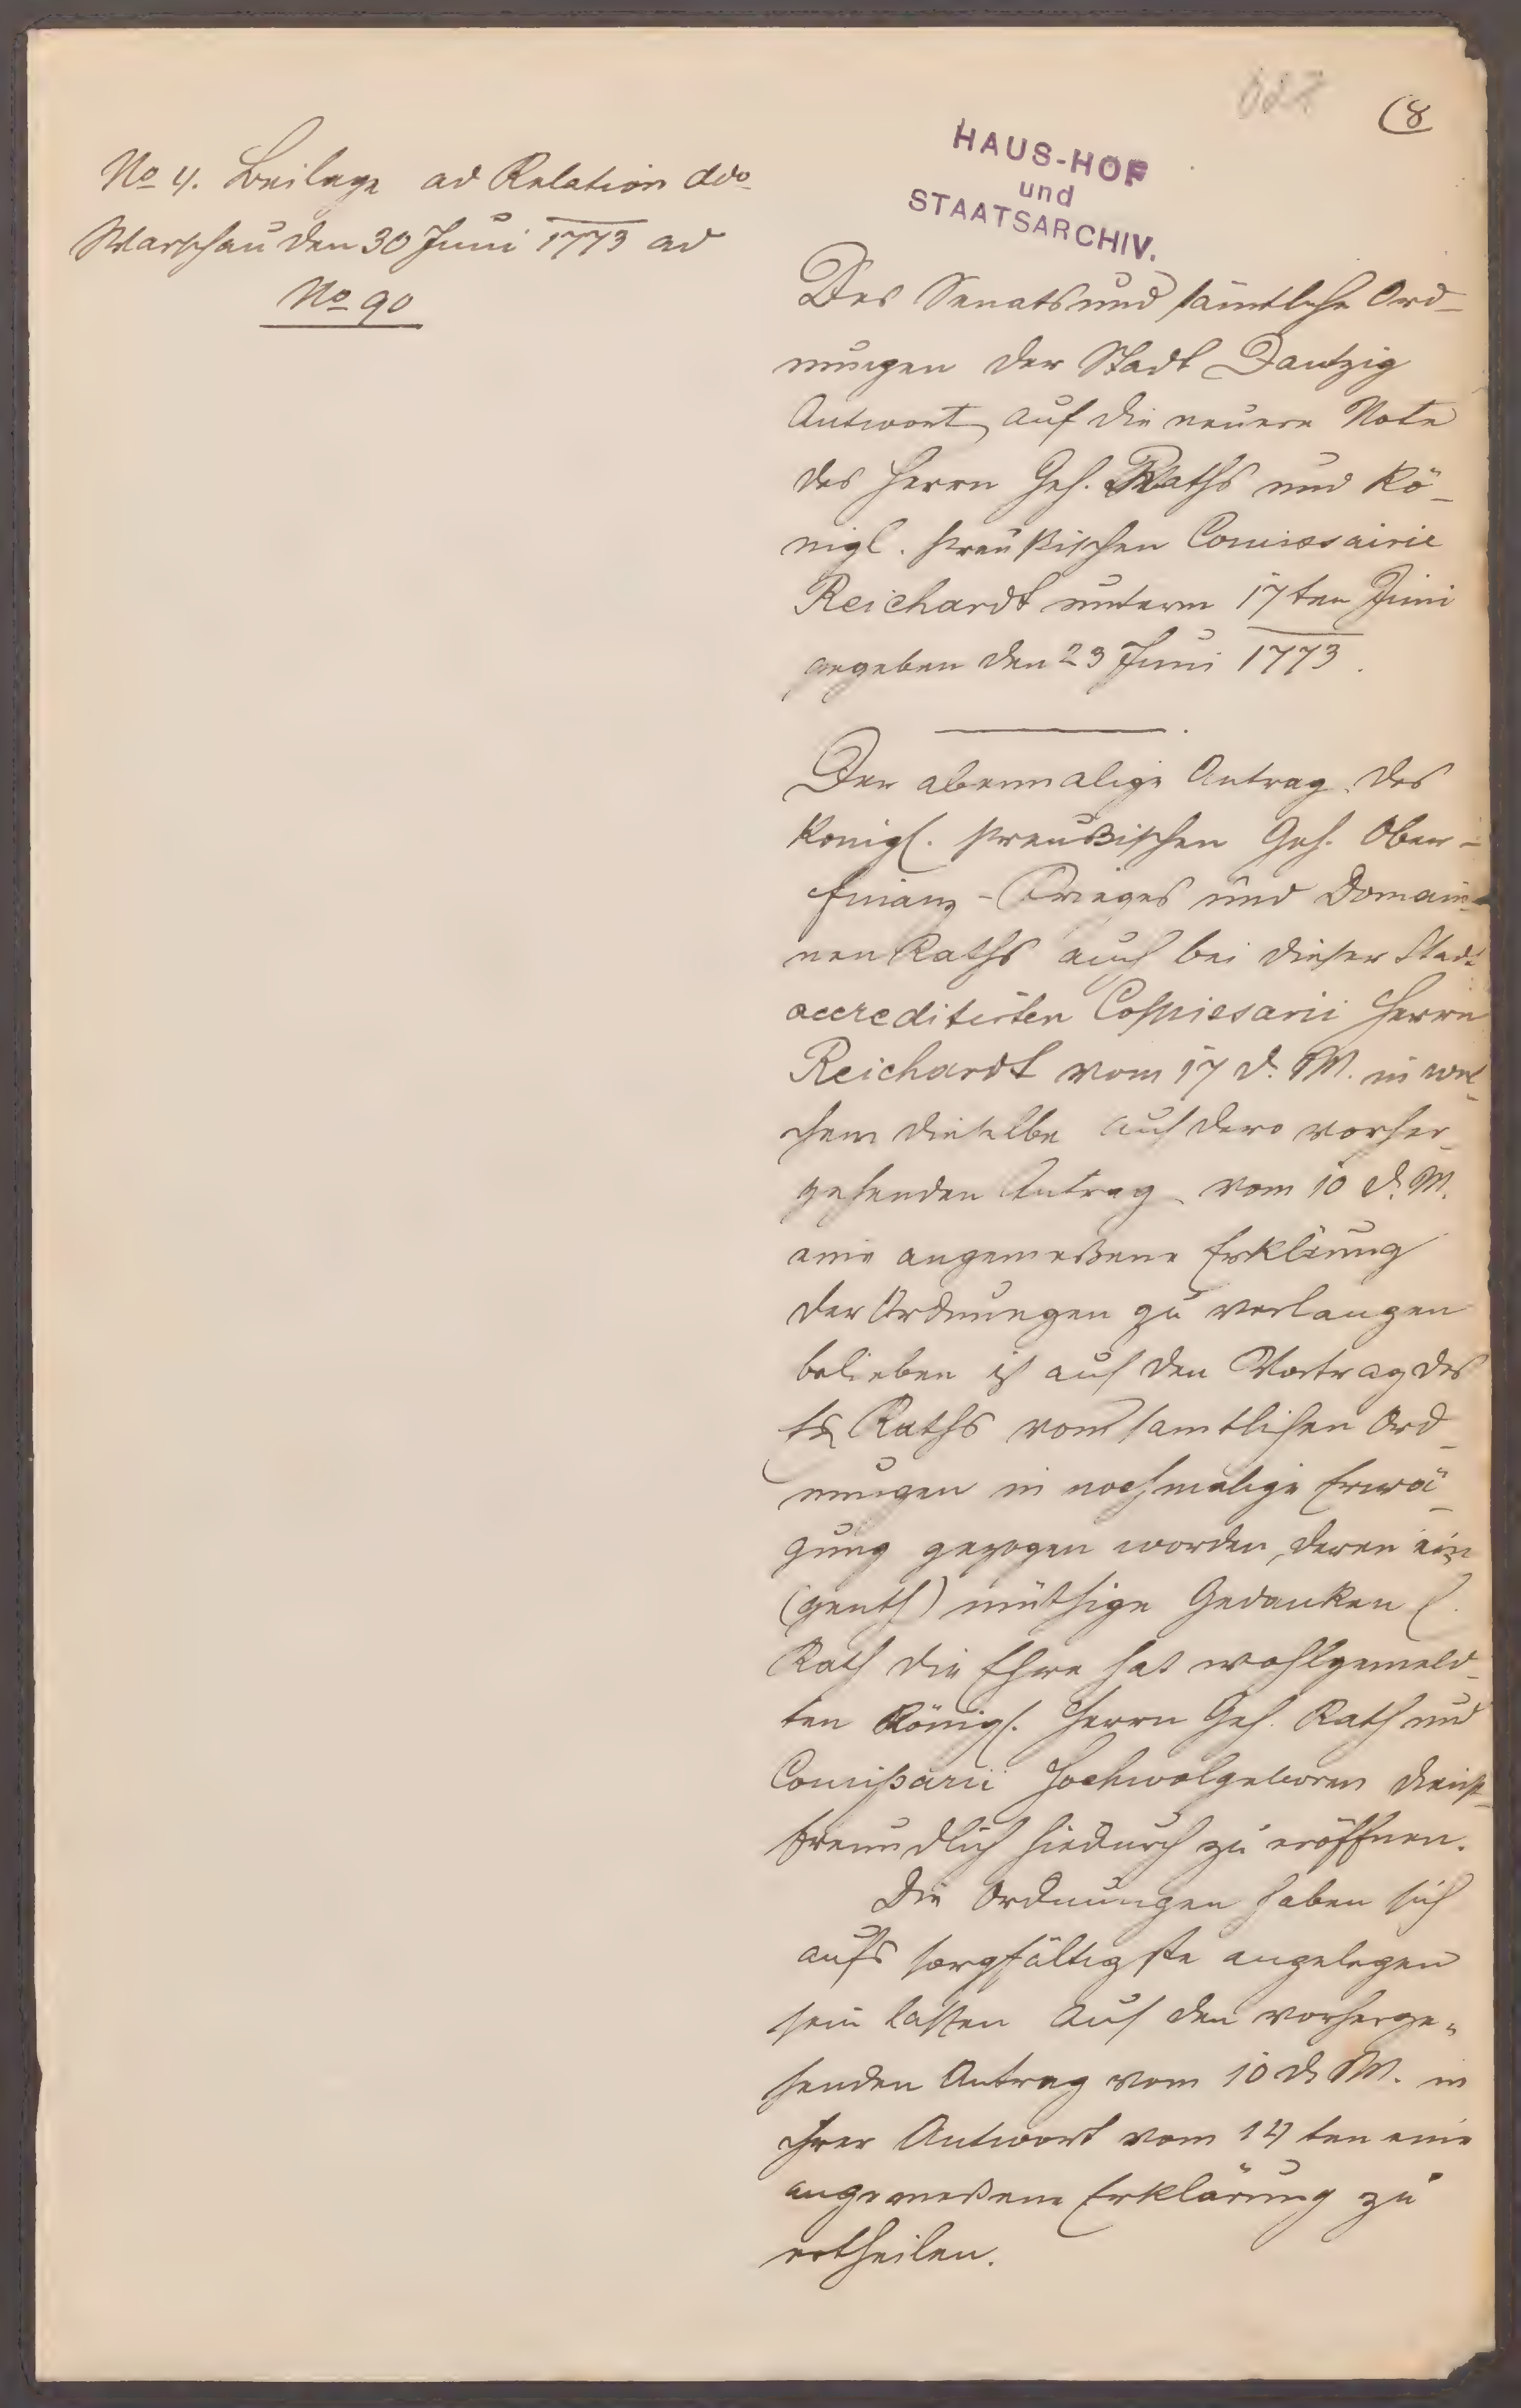 (8
HAUS-HOF
und
STAATSARCHIV.
No 4. Beilage ad Relation ddo
Warschau den 30 Juni 1773 ad
No 90
Des Senats und sämtliche Ord-
nungen der Stadt Dantzig
Antwort auf die neuere Note
des Herrn Geh. Raths und Kö-
nigl. preußischen Comissairie
Reichardt unterm 17ten Juni
gegeben den 23 Juni 1773.
Der abermalige Antrag des
Königl. preußischen Geh. Ober-
finanz-Krieges und Domain-
nen Raths auch bei dieser Stadt
accreditirten Commissarii Herrn
Reichardt vom 17 d. M. in wel-
chem dieselbe auf dero vorher-
gehenden Antrag vom 10 d. M.
eine angemeßene Erklärung
der Ordnungen zu verlangen
belieben ist auf den Vortrag des
Raths von samtlichen Ord-
nungen in nochmalige Erwä-
gung gezogen worden, deren ein
(genth) müthige Gedanken E.
Rath die Ehre hat wohlgemeld-
ten Königl. Herrn Geh. Rath und
Comißarii Hochwolgeboren dienst-
freundlich hiedurch zu eröffnen.
Die Ordnungen haben sich
aufs sorgfältigste angelegen
sein lassen auf den vorherge-
henden Antrag vom 10 d. M. in
ihrer Antwort vom 14 ten eine
angemeßene Erklärung zu
ertheilen.